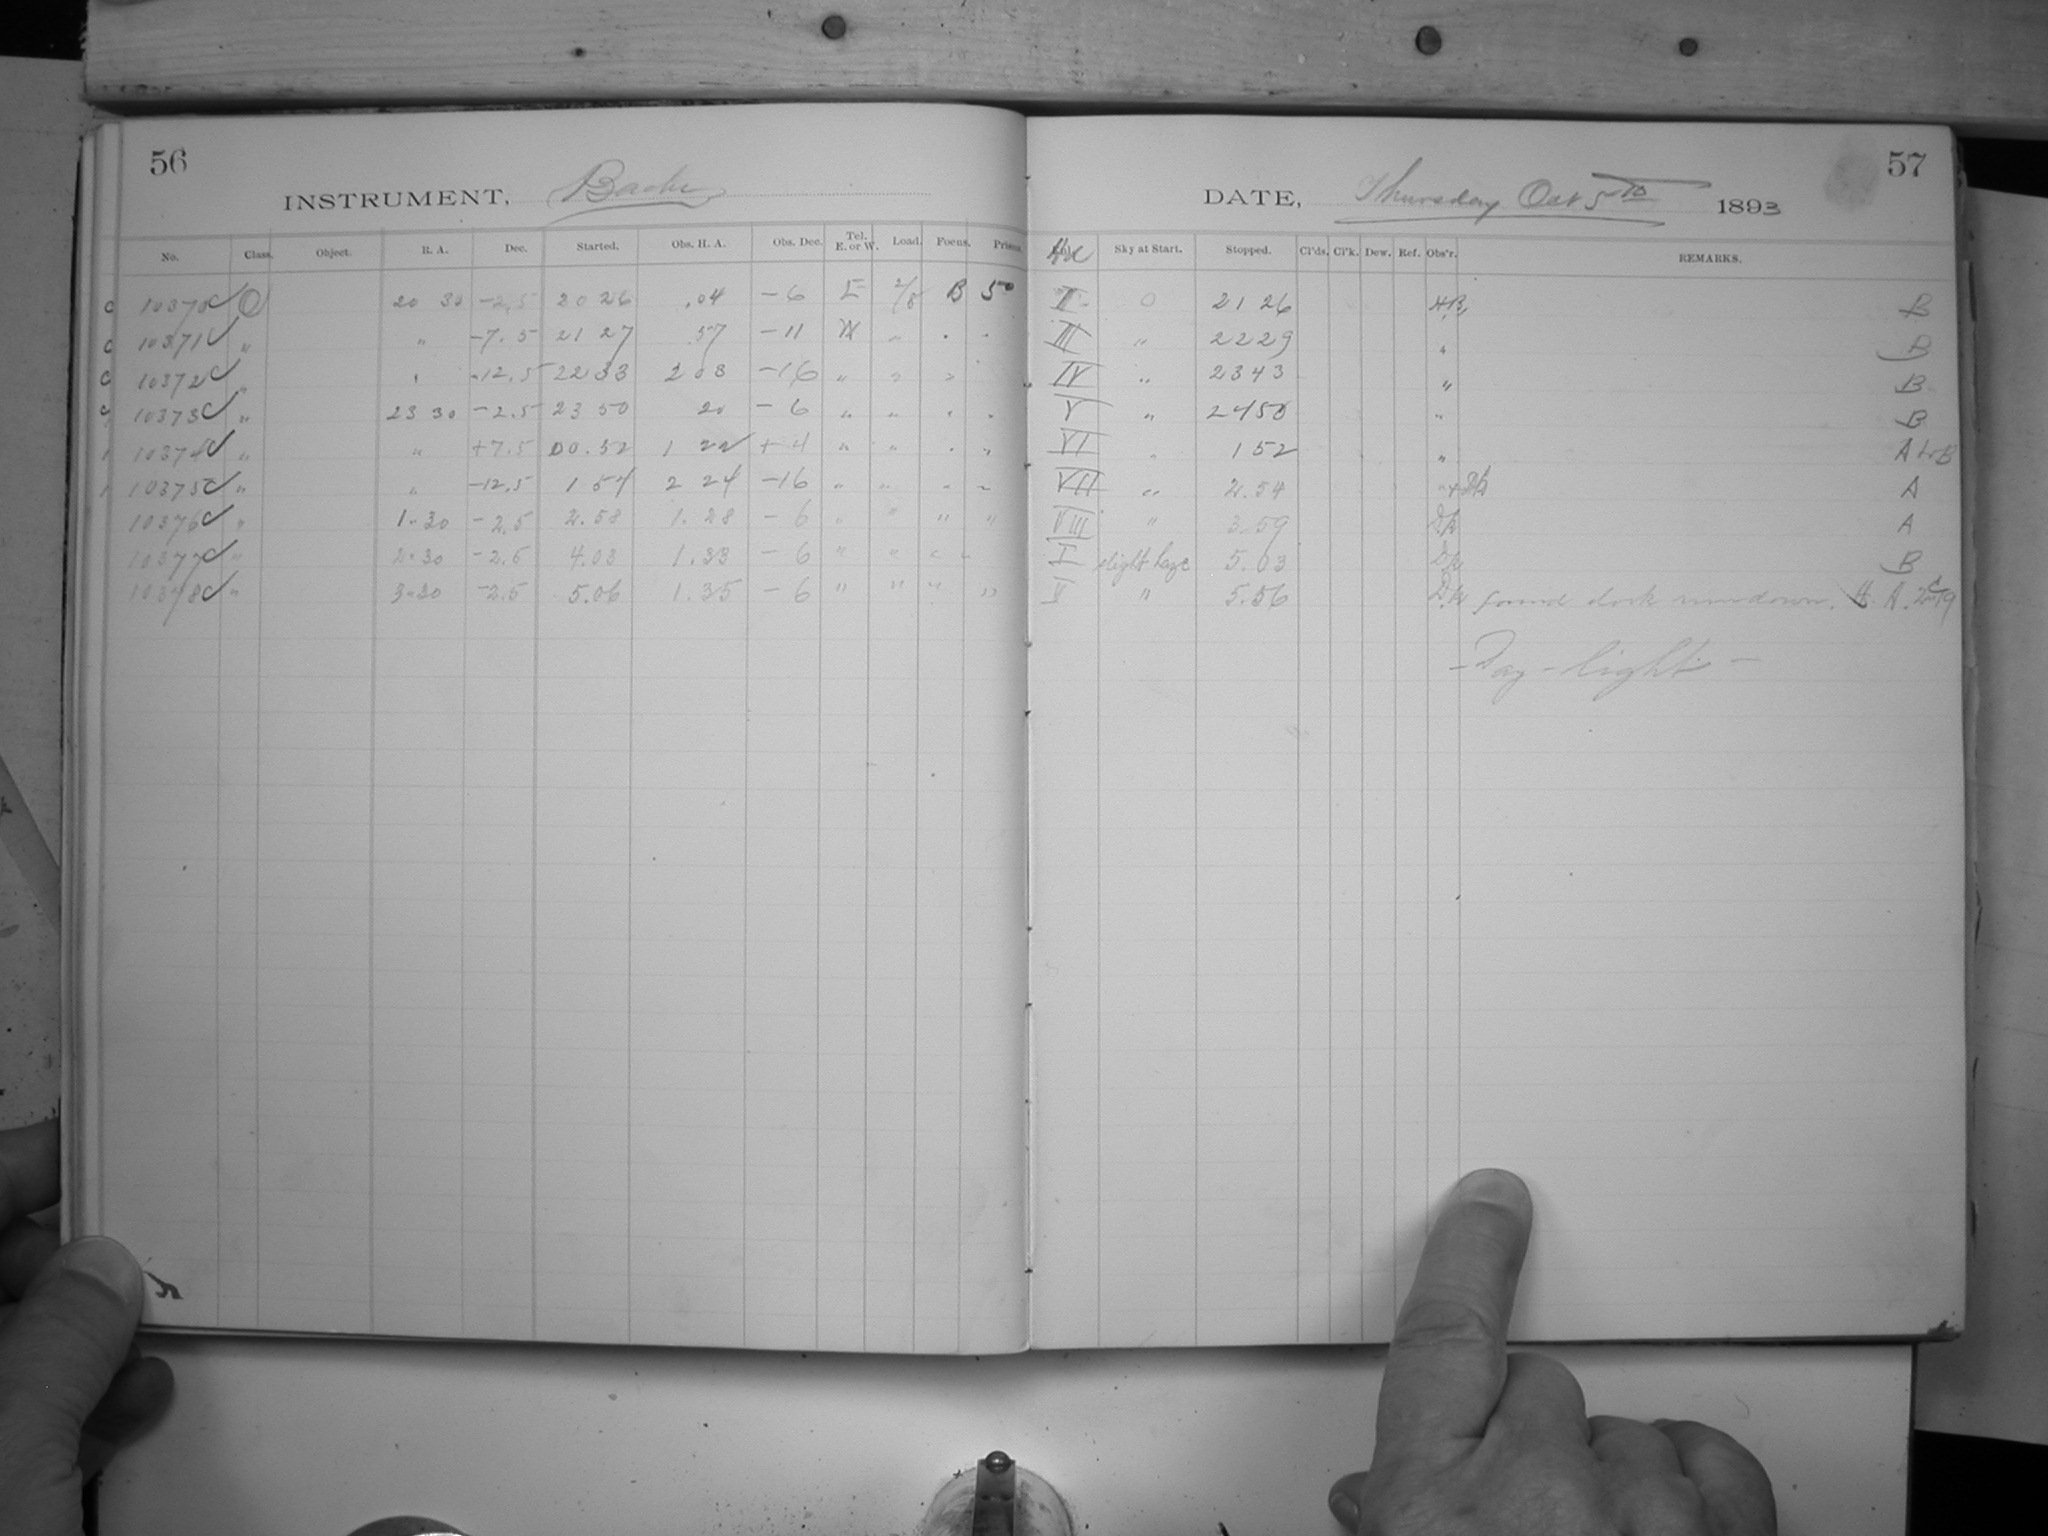 56
INSTRUMENT, Bache
No. Class. Object. R. A. Dec. Started. Obs. H. A. Obs. Dec. Tel. E. or W. Load. Focus. Prisms.
C 10370 O 20 30 -2.5 20 26 .04 -6 E 2/8 B 50
C 10371 " " -7.5 21 27 57 -11 W " " "
C 10372 " " -12.5 22 33 2 03 -16 " " " "
10373 " 23 30 -2.5 23 50 20 -6 " " " "
10374 " " +7.5 00.52 1 22 +4 " " " "
10375 " " -12.5 1 54 2 24 -16 " " " "
10376 " 1.30 -2.5 2.58 1.28 -6 " " " "
10377 " 2.30 -2.5 4.03 1.33 -6 " " " "
10378 " 3.30 -2.5 5.06 1.35 -6 " " " "
57
DATE, Thursday Oct 5th 1893
Sky at Start. Stopped. Cl'ds. Cl'k. Dew. Ref. Obs'r. REMARKS.
II O 21 26 H.B. B
III " 22 29 " B
IV " 23 43 " B
V " 24 50 " B
VI " 1 52 " A to B
VII " 2.54 " A
VIII " 3.59 A
I slight haze 5.03 B
V " 5.56 found clock run down. A.
- Day-light -